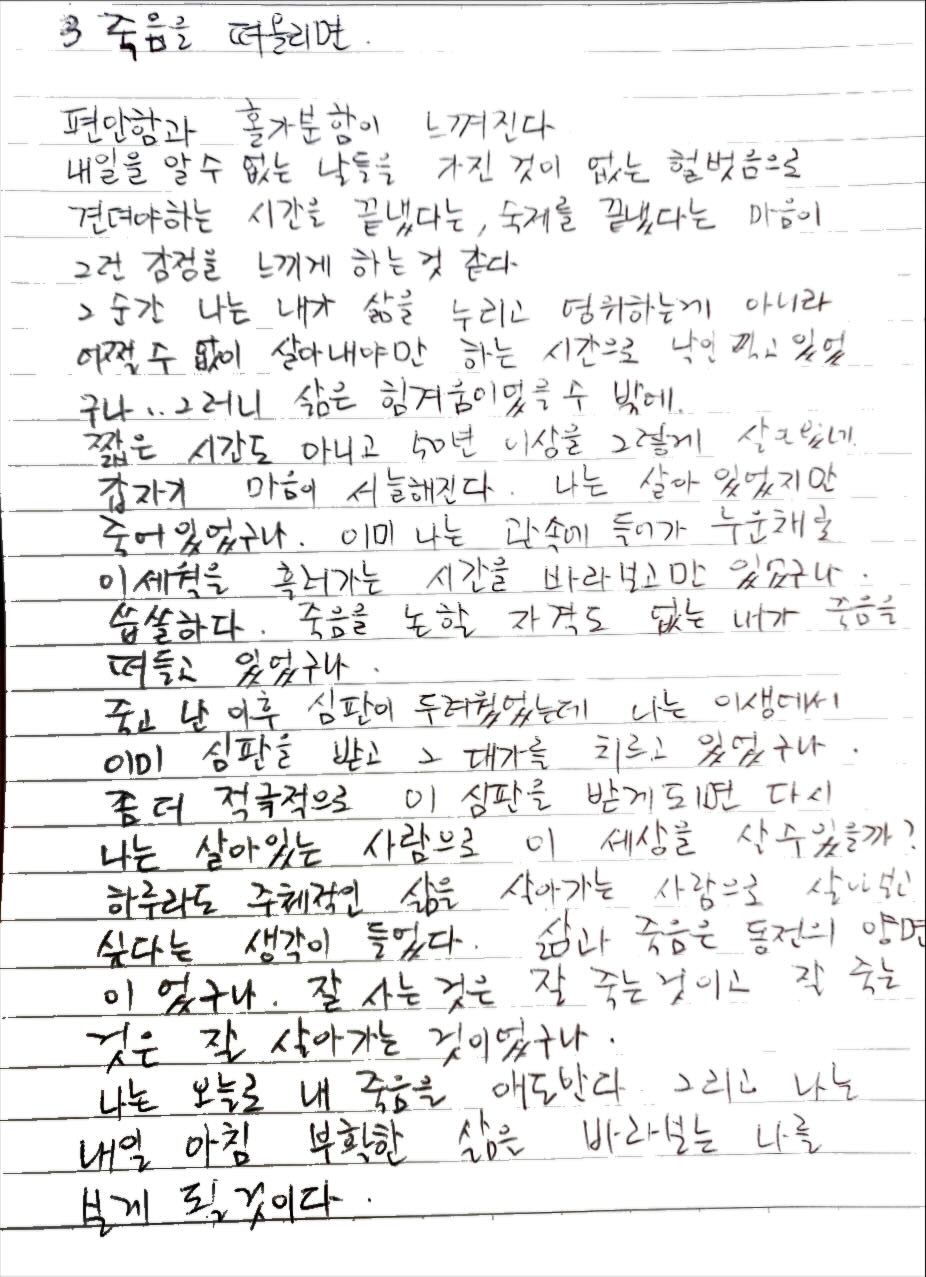 3 죽음을 떠올리면.
편안함과 홀가분함이 느껴진다
내일을 알 수 없는 날들을 가진 것이 없는 헐벗음으로
견뎌야하는 시간을 끝냈다는, 숙제를 끝냈다는 마음이
그런 감정을 느끼게 하는 것 같다
그 순간 나는 내가 삶을 누리고 영위하는게 아니라
어쩔 수 없이 살아내야만 하는 시간으로 낙인 찍고 있었
구나.. 그러니 삶은 힘겨움이었을 수 밖에.
짧은 시간도 아니고 50년 이상을 그렇게
갑자기 마음이 서늘해진다. 나는 살아 있었지만
죽어있었구나. 이미 나는 관속에 들어가 누운채로
이세월을 흘러가는 시간을 바라보고만 있었구나.
씁쓸하다. 죽음을 논할 자격도 없는 내가 죽음을
떠들고 있었구나.
죽고 난 이후 심판이 두려웠었는데 나는 이생에서
이미 심판을 받고 그 대가를 치르고 있었구나.
좀더 적극적으로 이 심판을 받게되면 다시
나는 살아있는 사람으로 이 세상을 살 수 있을까?
하루라도 주체적인 삶을 살아가는 사람으로 살아보고
싶다는 생각이 들었다. 삶과 죽음은 동전의 양면
이 었구나. 잘 사는 것은 잘 죽는것이고 잘 죽는
것은 잘 살아가는 것이었구나.
나는 오늘로 내 죽음을 애도한다 그리고 나는
내일 아침 부활한 삶을 바라보는 나를
보게 될 것이다.